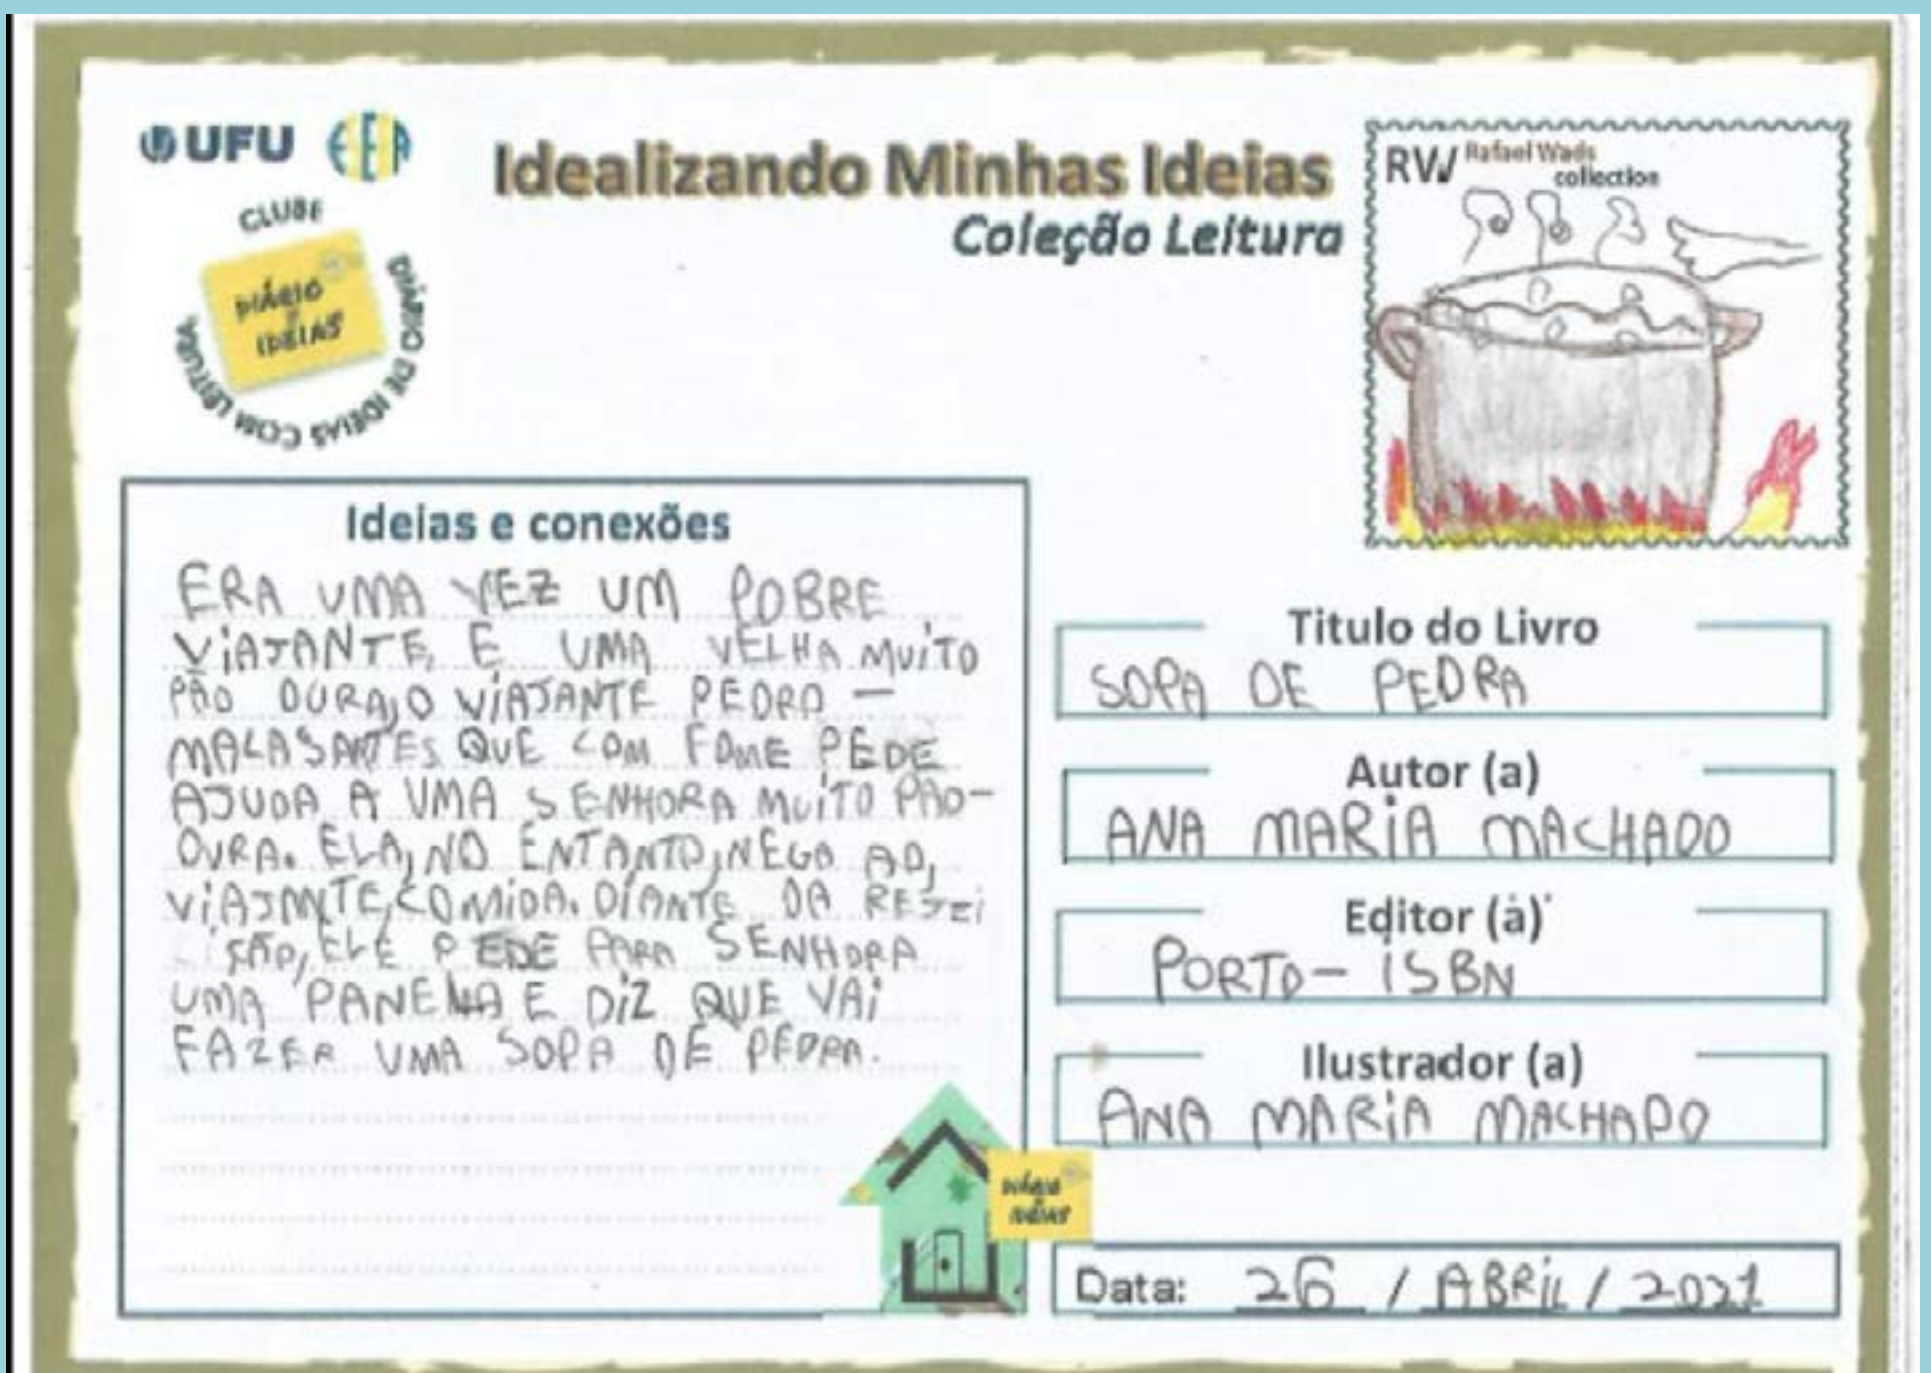 UFU
CLUBE
DIÁRIO DE IDEIAS COM LEITURA
DIÁRIO
IDEIAS
Idealizando Minhas Ideias
Coleção Leitura
RW Rafael Wads
collection
Ideias e conexões
ERA UMA VEZ UM POBRE
VIAJANTE, E UMA VELHA MUITO
PÃO DURA, O VIAJANTE PEDRO -
MALASARTES QUE COM FOME PEDE
AJUDA A UMA SENHORA MUITO PÃO-
DURA. ELA, NO ENTANTO, NEGA AO,
VIAJANTE, COMIDA. DIANTE DA REJEI
ELE PEDE PARA SENHORA
UMA PANELA E DIZ QUE VAI
FAZER UMA SOPA DE PEDRA.
Titulo do Livro
SOPA DE PEDRA
Autor (a)
ANA MARIA MACHADO
Editor (a)
PORTO - ISBN
Ilustrador (a)
ANA MARIA MACHADO
DIÁRIO
IDEIAS
Data: 26 / ABRIL / 2021